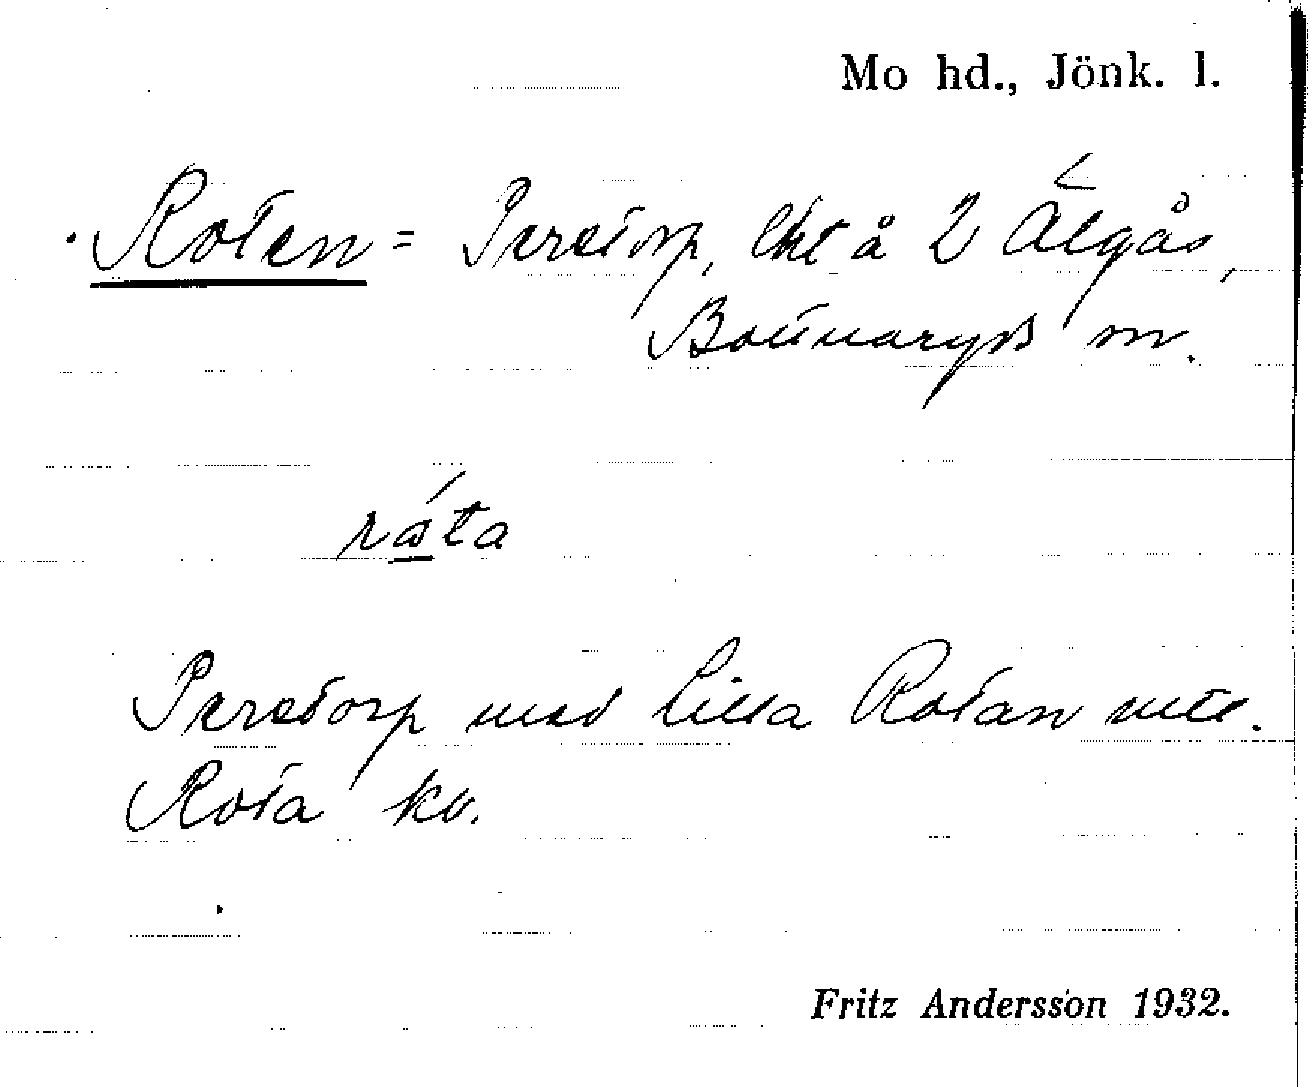 Mo hd., Jönk. l.
Rotan = Perstorp, lht å 2 Älgås,
Bottnaryds sn.
råta
Perstorp med lilla Rotan
Rota kv.
Fritz Andersson 1932.